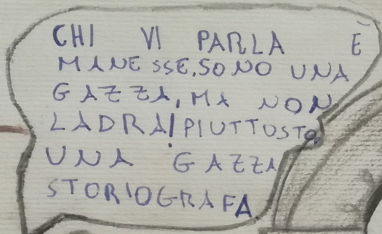 CHI VI PARLA È
MANESSE, SONO UNA
GAZZA, MA NON
LADRA! PIUTTOSTO
UNA GAZZA
STORIOGRAFA